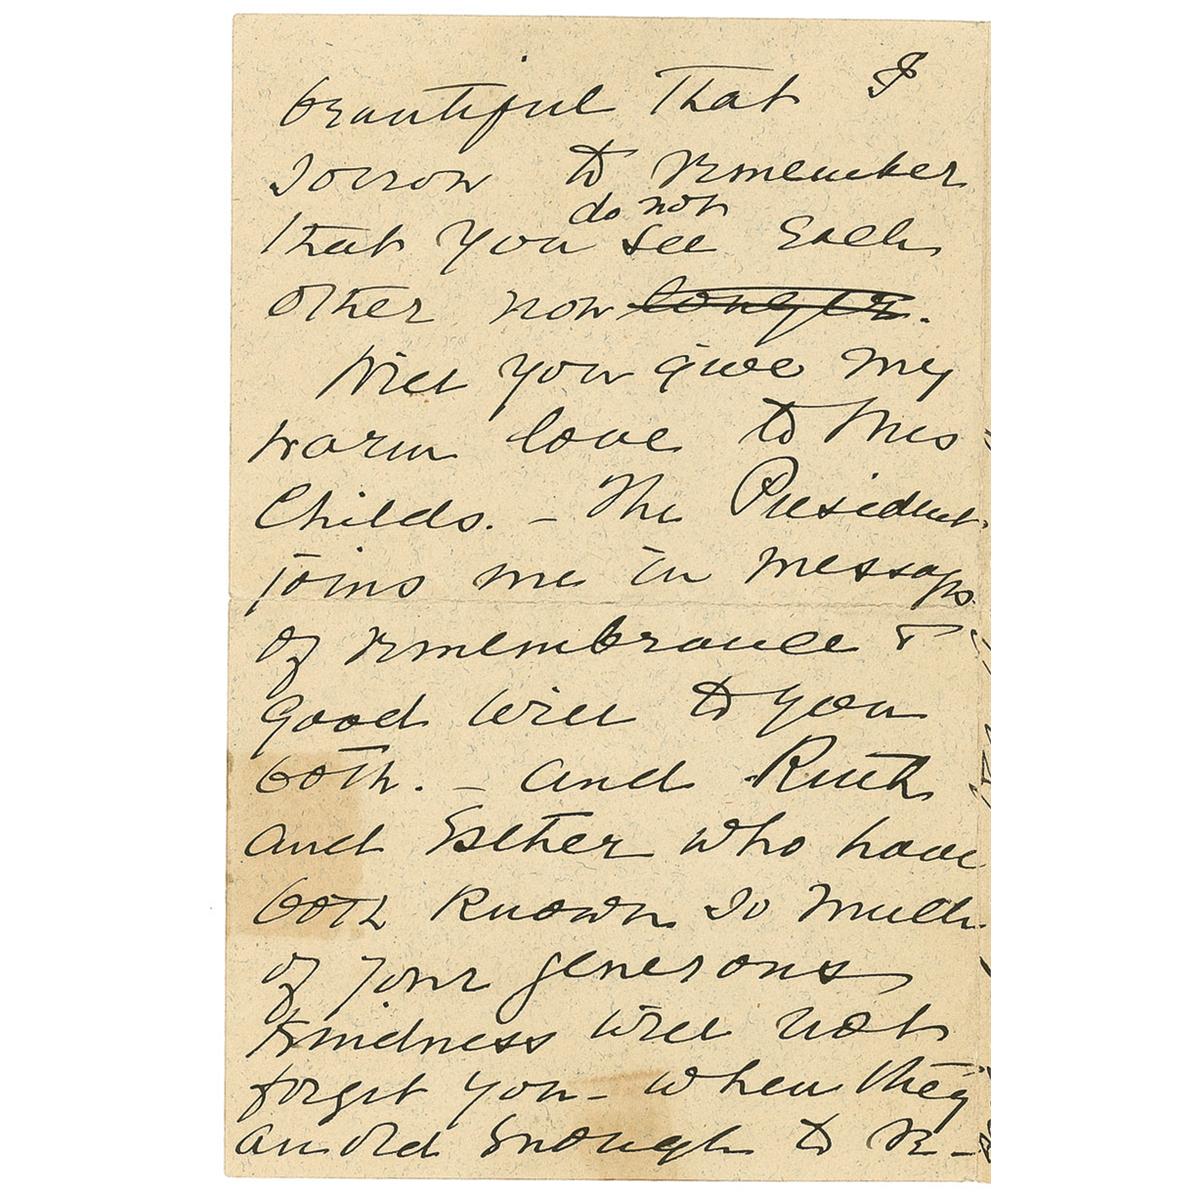 beautiful that I
sorrow to remember
do not
that you see each
other now longer.
Will you give my
warm love to Mrs
Childs. – The President
joins me in messages
of remembrance &
good will to you
both. – and Ruth
and Esther who have
both known so much
of your generous
kindness will not
forget you – when they
are old enough to re-